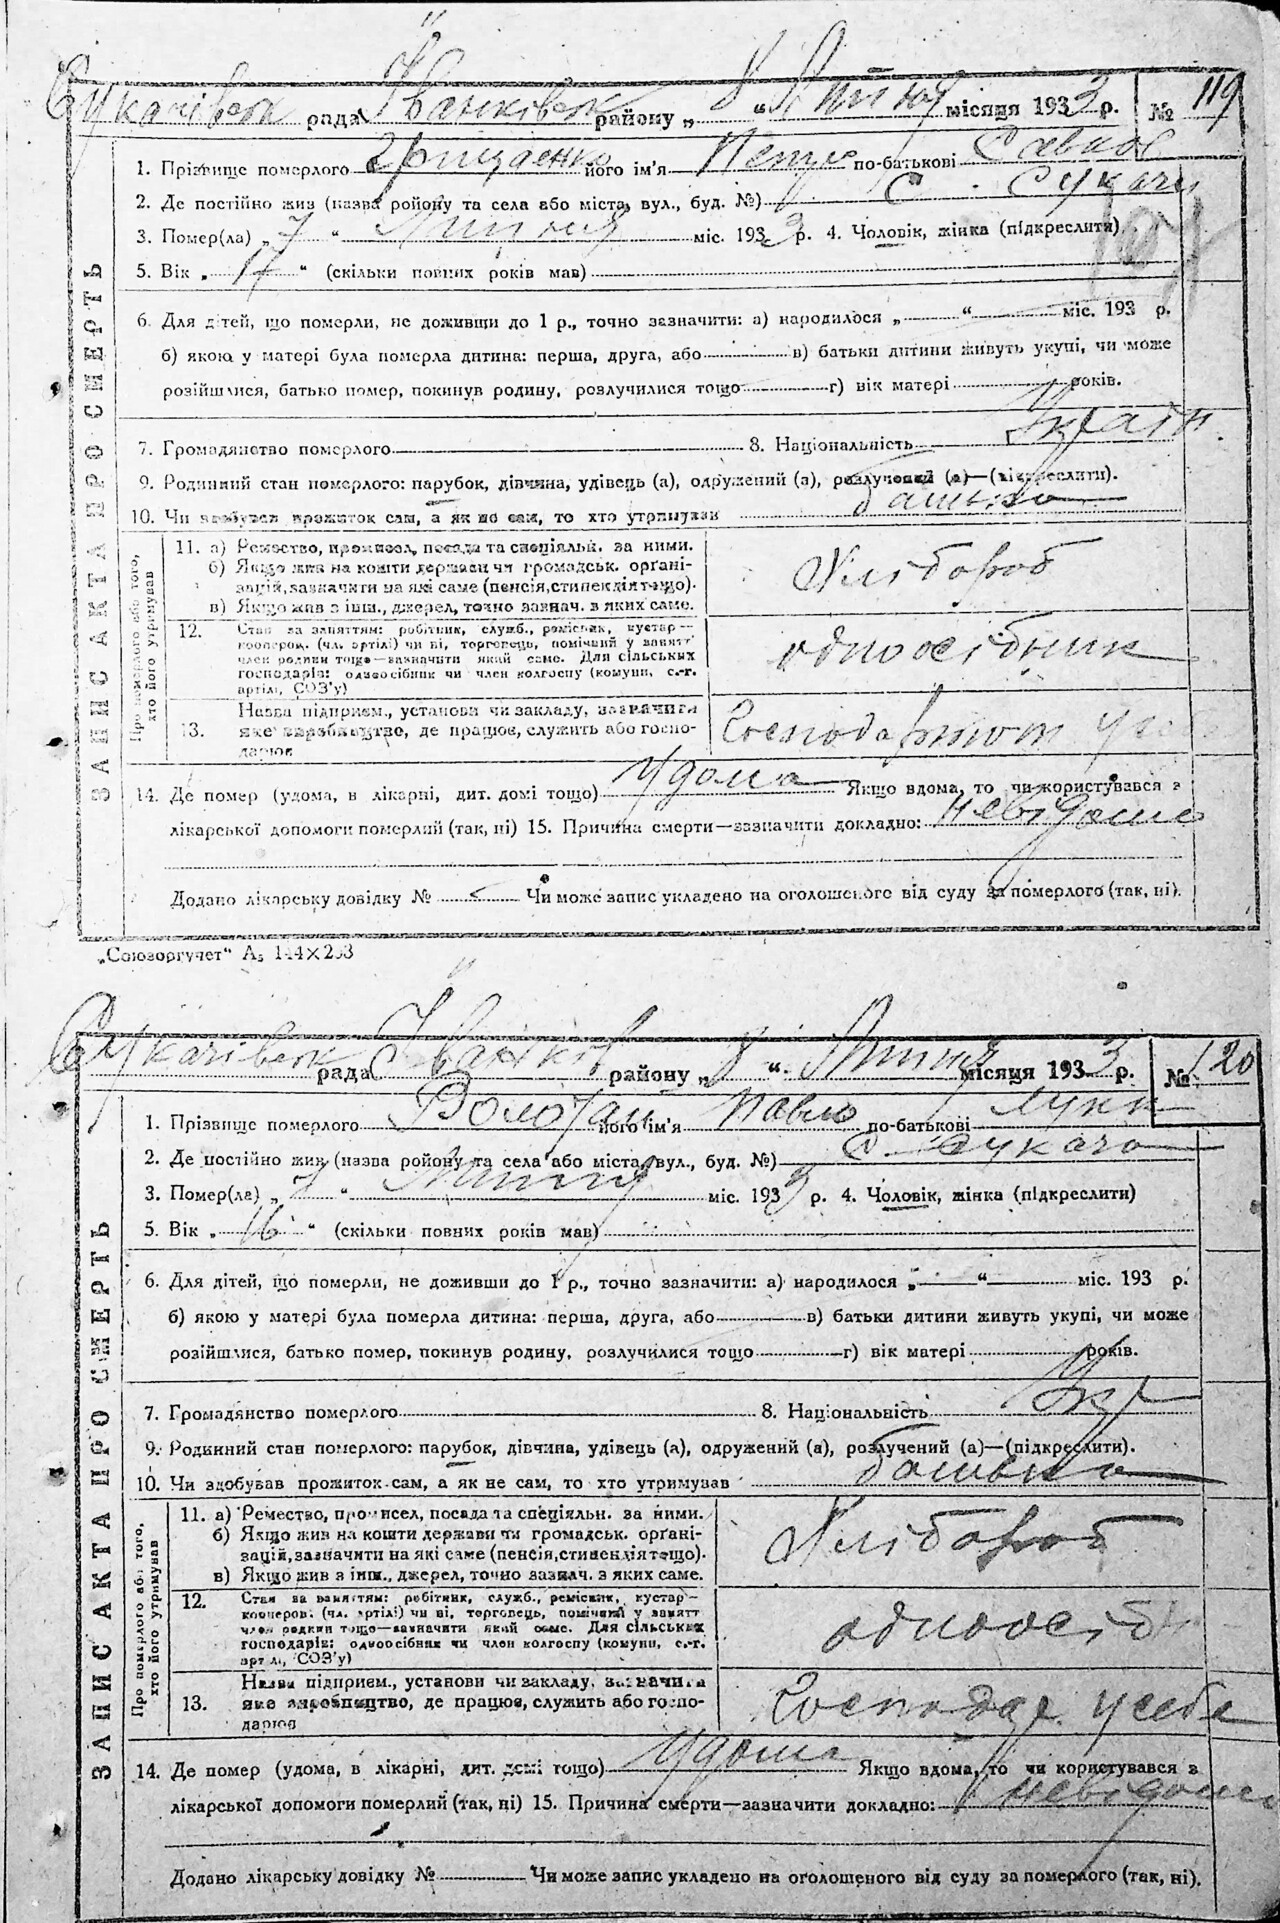 Сукачівськ рада Іванківськ району „ 8 “ Липня місяця 1933 р. № 119
ЗАПИС АКТА ПРО СМЕРТЬ
1. Прізвище померлого Грищенко його ім'я Петро по-батькові Савков
2. Де постійно жив (назва району та села або міста, вул., буд. №) с. Сукачі
3. Помер(ла) „ 7 “ Липня міс. 1933 р. 4. Чоловік, жінка (підкреслити)
5. Вік „ 17 “ (скільки повних років мав)
6. Для дітей, що померли, не доживши до 1 р., точно зазначити: а) народилося „ “ міс. 193 р.
б) якою у матері була померла дитина: перша, друга, або в) батьки дитини живуть укупі, чи може
розійшлися, батько помер, покинув родину, розлучилися тощо г) вік матері років.
7. Громадянство померлого 8. Національність Україн.
9. Родинний стан померлого: парубок, дівчина, удівець (а), одружений (а), розлучений (а)—(підкреслити).
10. Чи здобував прожиток сам, а як не сам, то хто утримував батько
Про померлого або того, хто його утримував
11. а) Ремество, промисел, посада та спеціяльн. за ними.
б) Якщо жив на кошти держави чи громадськ. орґані-
зацій, зазначити на які саме (пенсія, стипендія тощо).
в) Якщо жив з інш., джерел, точно зазнач. з яких саме.
Хлібороб
12. Стан за заняттям: робітник, служб., ремісник, кустар—
кооперов. (чл. артілі) чи ні, торговець, помічний у занятт
член родини тощо—зазначити який саме. Для сільських
господарів: одноосібник чи член колгоспу (комуни, с.-г.
артілі, СОЗ'у)
одноосібник
13. Назва підприєм., установи чи закладу, зазначити
яке виробництво, де працює, служить або госпо-
дарює
14. Де помер (удома, в лікарні, дит. домі тощо) удома Якщо вдома, то чи користувався з
лікарської допомоги померлий (так, ні) 15. Причина смерти—зазначити докладно: невідомо
Додано лікарську довідку № Чи може запис укладено на оголошеного від суду за померлого (так, ні).
„Союзоргучет“ А₅ 144×203
Сукачівськ рада Іванків району „ 8 “ Липня місяця 1933 р. № 120
ЗАПИС АКТА ПРО СМЕРТЬ
1. Прізвище померлого його ім'я Павло по-батькові Лукк
2. Де постійно жив (назва району та села або міста, вул., буд. №) с. Сукачі
3. Помер(ла) „ 7 “ Липня міс. 1933 р. 4. Чоловік, жінка (підкреслити)
5. Вік „ 16 “ (скільки повних років мав)
6. Для дітей, що померли, не доживши до 1 р., точно зазначити: а) народилося „ “ міс. 193 р.
б) якою у матері була померла дитина: перша, друга, або в) батьки дитини живуть укупі, чи може
розійшлися, батько помер, покинув родину, розлучилися тощо г) вік матері років.
7. Громадянство померлого 8. Національність Укр
9. Родинний стан померлого: парубок, дівчина, удівець (а), одружений (а), розлучений (а)—(підкреслити).
10. Чи здобував прожиток сам, а як не сам, то хто утримував батько
Про померлого або того, хто його утримував
11. а) Ремество, промисел, посада та спеціяльн. за ними.
б) Якщо жив на кошти держави чи громадськ. орґані-
зацій, зазначити на які саме (пенсія, стипендія тощо).
в) Якщо жив з інш., джерел, точно зазнач. з яких саме.
Хлібороб
12. Стан за заняттям: робітник, служб., ремісник, кустар—
кооперов. (чл. артілі) чи ні, торговець, помічний у занятт
член родини тощо—зазначити який саме. Для сільських
господарів: одноосібник чи член колгоспу (комуни, с.-г.
артілі, СОЗ'у)
одноосібн
13. Назва підприєм., установи чи закладу, зазначити
яке виробництво, де працює, служить або госпо-
дарює
Господар. у себе
14. Де помер (удома, в лікарні, дит. домі тощо) удома Якщо вдома, то чи користувався з
лікарської допомоги померлий (так, ні) 15. Причина смерти—зазначити докладно: невідомо
Додано лікарську довідку № Чи може запис укладено на оголошеного від суду за померлого (так, ні).